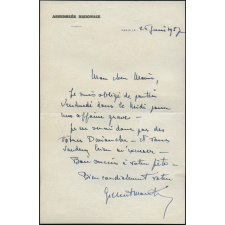 ASSEMBLÉE NATIONALE
25 juin 1957
Mon cher Maire,
Je suis obligé de partir
vendredi dans le midi pour
une affaire grave -
Je ne serai donc pas des
vôtres Dimanche - et vous
voudrez bien m'excuser -
Bon succès à votre fête -
Bien cordialement vôtre